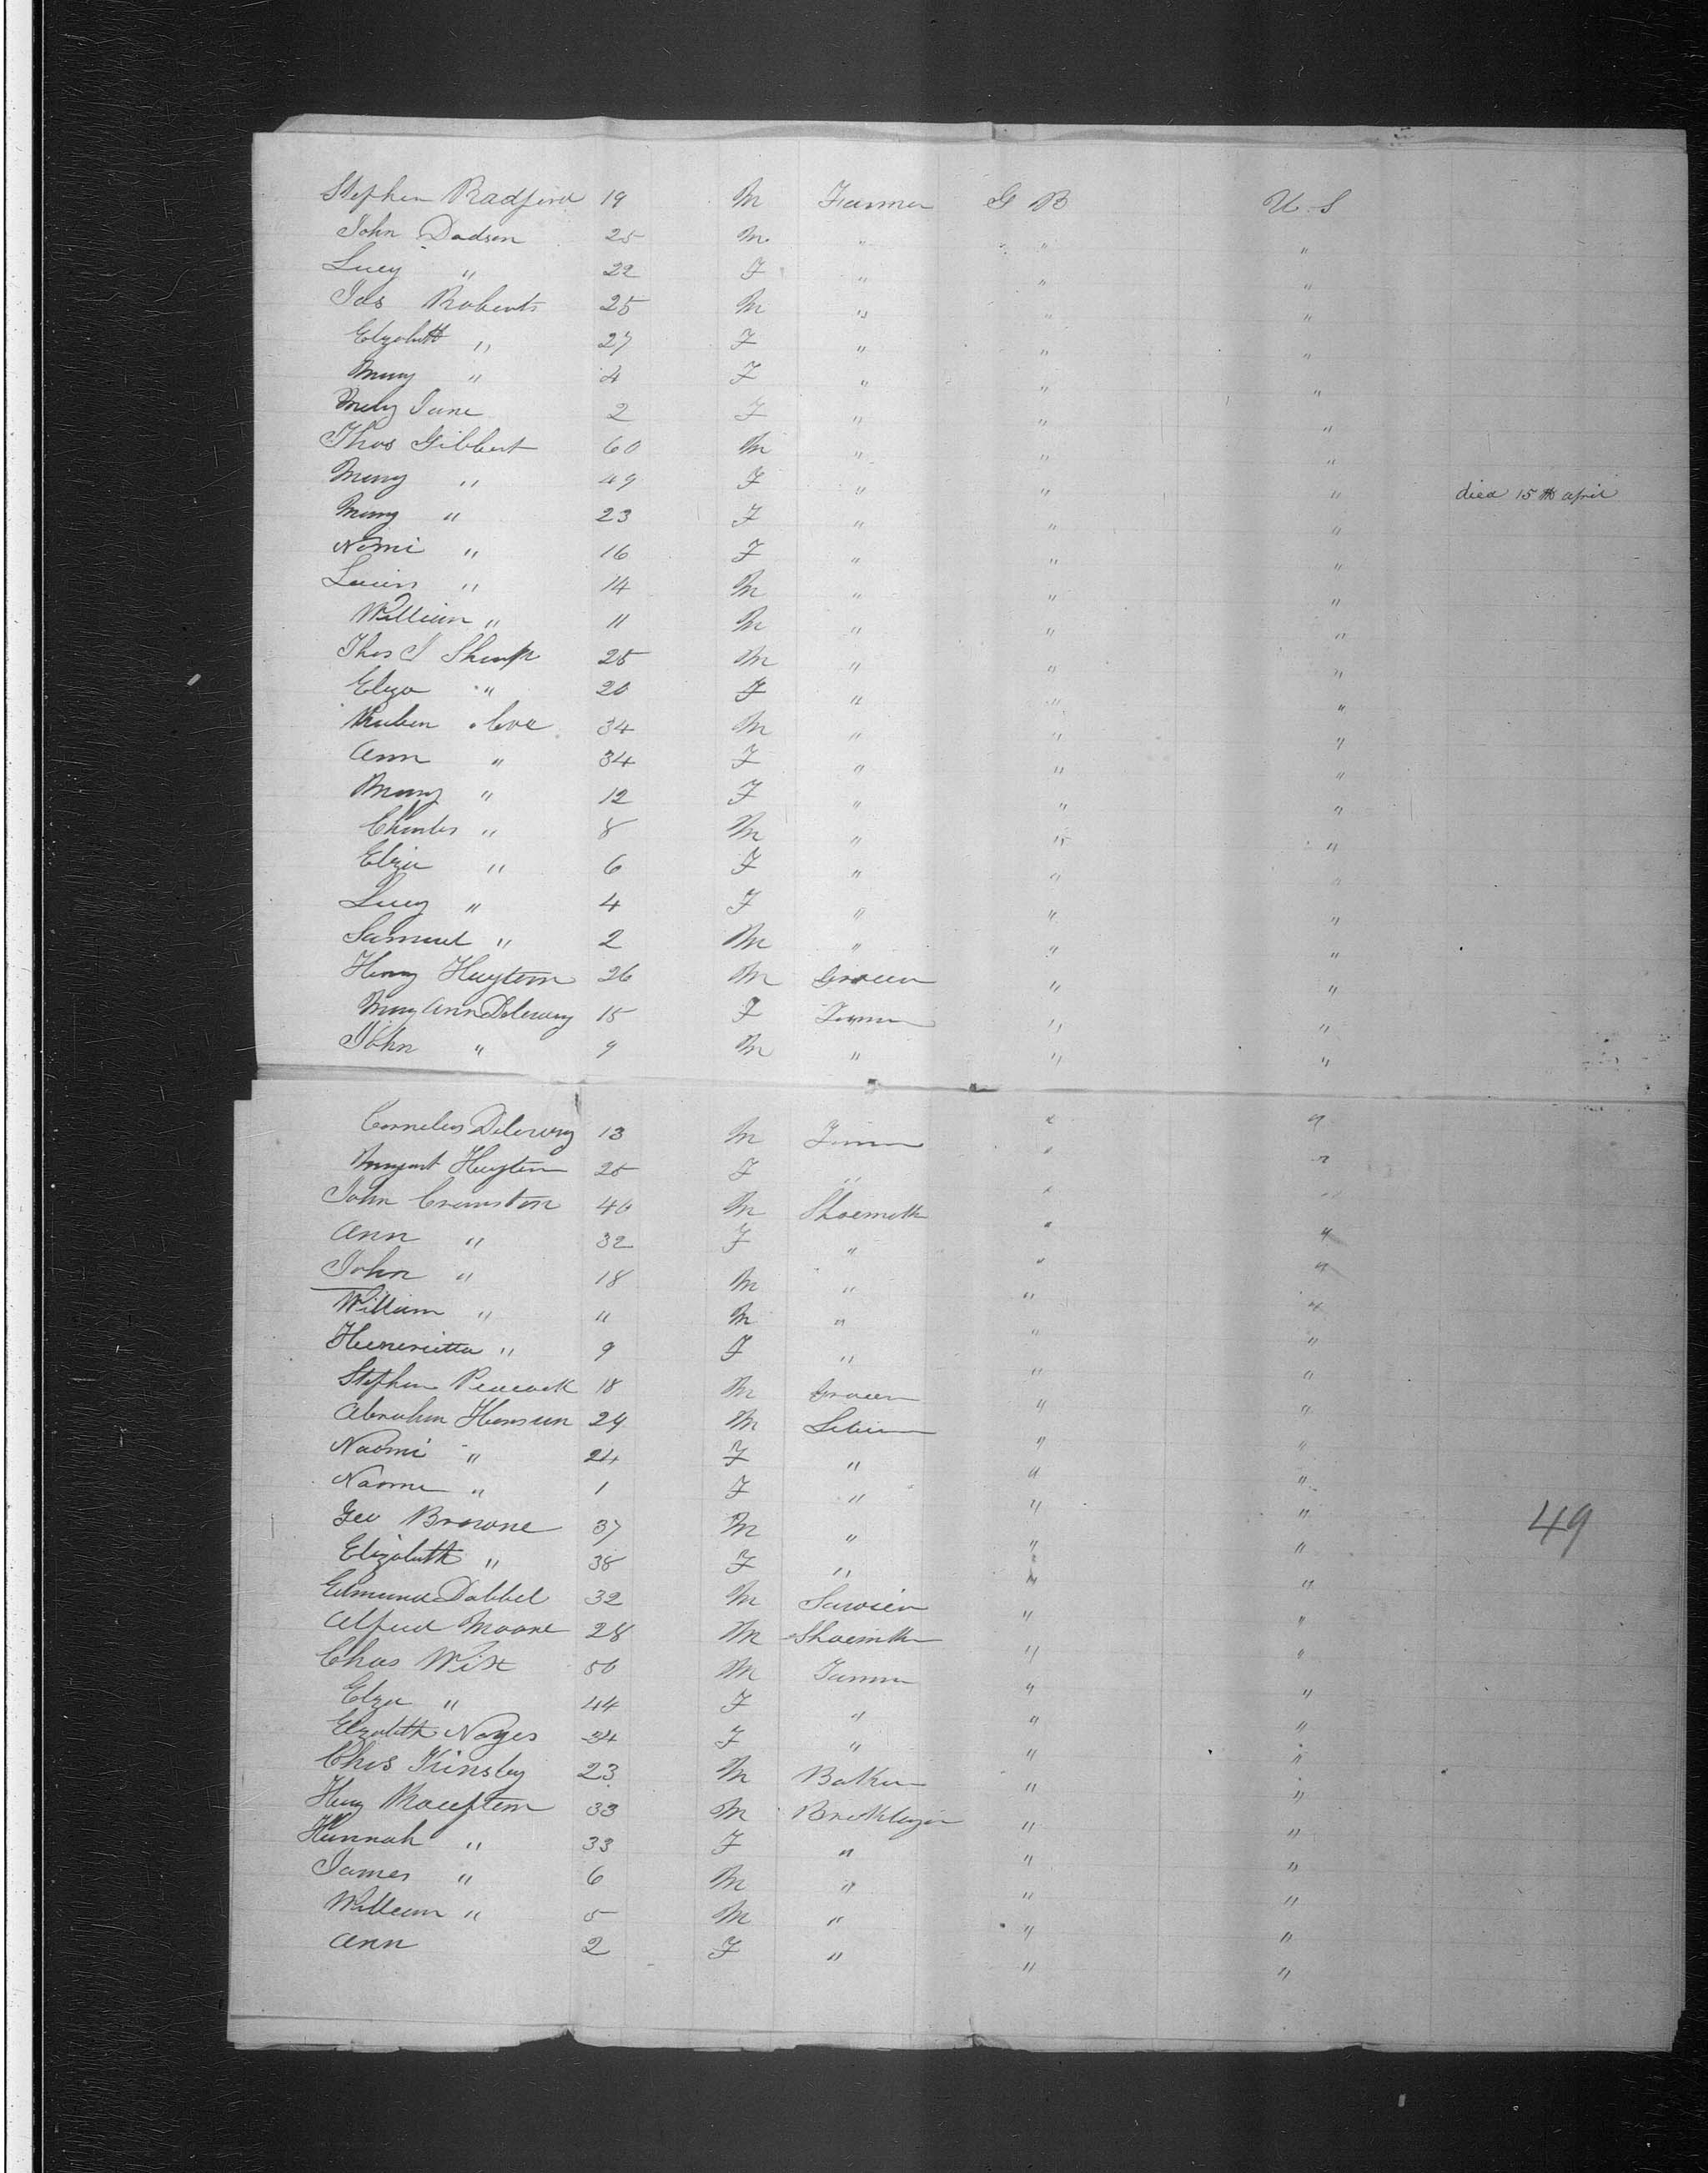 Stephen Radford 19 M Farmer G B U. S
John Dadson 25 M " " "
Lucy " 22 F " " "
Jas Roberts 25 M " " "
Elizabeth " 27 F " " "
Mary " 4 F " " "
Jane 2 F " " "
Thos Gibbert 60 M " " "
Mary " 49 F " " " died 15th april
Mary " 23 F " " "
Nomi " 16 F " " "
14 M " " "
William " 11 M " " "
Thos J Sharp 25 M " " "
Eliza " 20 F " " "
Reuben 34 M " " "
Ann " 34 F " " "
Mary " 12 F " " "
Charles " 8 M " " "
Eliza " 6 F " " "
Lucy " 4 F " " "
Samuel " 2 M " " "
Henry 26 M " "
Mary Ann 15 F " "
John " 9 M " " "
Cornelius 13 M " "
25 F " " "
John Cranston 40 M " "
Ann " 32 F " " "
John " 18 M " " "
William " 11 M " " "
Henerietta " 9 F " " "
Stephen Peacock 18 M " "
Abraham 24 M " "
Naomi " 24 F " " "
Naome " 1 F " " "
Geo Browne 37 M " " "
Elizabeth " 38 F " " "
Edmund Dabbel 32 M " "
Alfred Moore 28 M " "
Chas Wix 50 M " "
Eliza " 44 F " " "
Elizabeth Noyes 34 F " " "
Chas Kinsley 23 M Baker " "
Henry 33 M Bricklayer " "
Hannah " 33 F " " "
James " 6 M " " "
William " 5 M " " "
Ann 2 F " " "
49